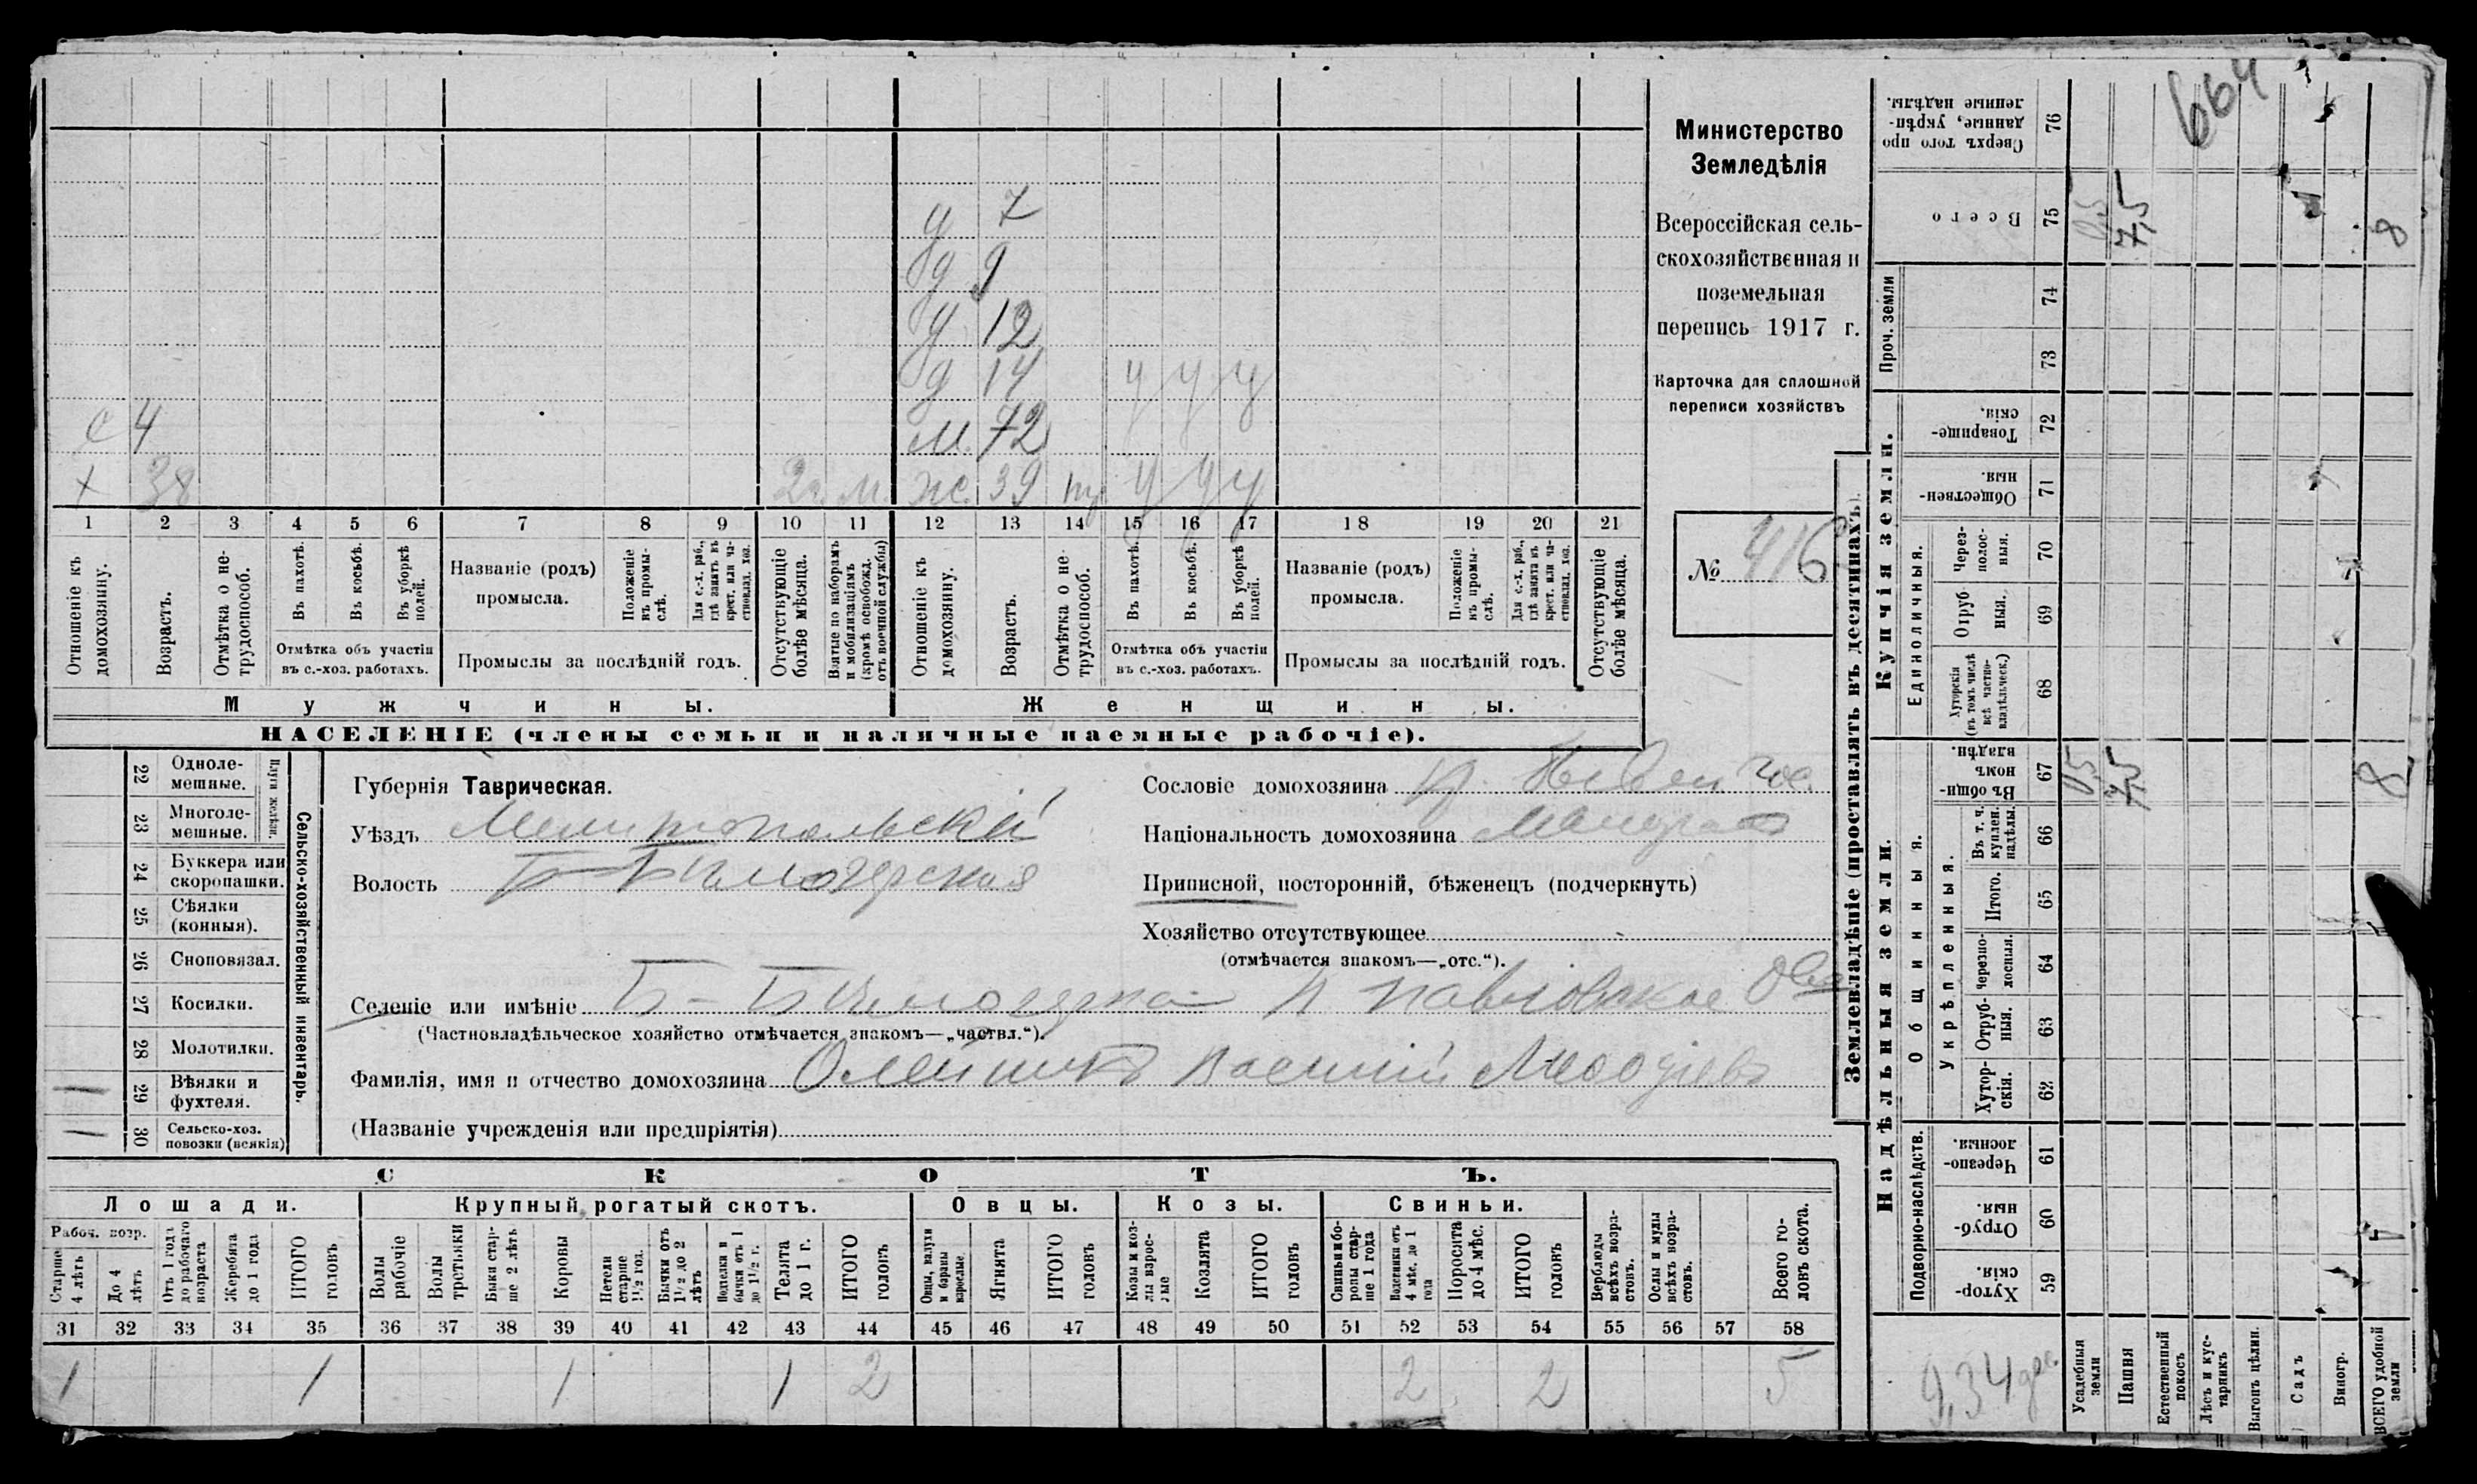 664
Министерство
Земледѣлія
Всероссійская сель-
скохозяйственная и
поземельная
перепись 1917 г.
Карточка для сплошной
переписи хозяйствъ
№ 416
д 7
д 9
д 12
д 14 у у у
с 4 м. 72
х 38 2 г. м. ж. 39 у у у
1 2 3 4 5 6 7 8 9 10 11 12 13 14 15 16 17 18 19 20 21
Отношеніе къ домохозяину.
Возрастъ.
Отмѣтка о не-трудоспособ.
Въ пахотѣ.
Въ косьбѣ.
Въ уборкѣ полей.
Отмѣтка объ участіи
въ с.-хоз. работахъ.
Названіе (родъ)
промысла.
Положеніе въ промы-слѣ.
Для с.-х. раб., гдѣ занятъ въ крест. или ча-стновлад. хоз.
Промыслы за послѣдній годъ.
Отсутствующіе болѣе мѣсяца.
Взятые по наборамъ и мобилизаціямъ (кромѣ освобожд. отъ военной службы)
Отношеніе къ домохозяину.
Возрастъ.
Отмѣтка о не-трудоспособ.
Въ пахотѣ.
Въ косьбѣ.
Въ уборкѣ полей.
Отмѣтка объ участіи
въ с.-хоз. работахъ.
Названіе (родъ)
промысла.
Положеніе въ промы-слѣ.
Для с.-х. раб., гдѣ занята въ крест. или ча-стновлад. хоз.
Промыслы за послѣдній годъ.
Отсутствующіе болѣе мѣсяца.
Мужчины. Женщины.
НАСЕЛЕНІЕ (члены семьи и наличные наемные рабочіе).
Сельско-хозяйственный инвентарь.
Плуги желѣзн.
22 Одноле-мешные.
23 Многоле-мешные.
24 Буккера или скоропашки.
25 Сѣялки (конныя).
26 Сноповязал.
27 Косилки.
28 Молотилки.
29 Вѣялки и фухтеля. 1
30 Сельско-хоз. повозки (всякія) 1
Губернія Таврическая.
Уѣздъ Мелитопольскій
Волость Б-Бѣлозерская
Сословіе домохозяина кр.
Національность домохозяина Малоросъ
Приписной, посторонній, бѣженецъ (подчеркнуть)
Хозяйство отсутствующее
(отмѣчается знакомъ—„отс.“).
Селеніе или имѣніе Б-Бѣлозерка Павловское
(Частновладѣльческое хозяйство отмѣчается знакомъ—„частвл.“).
Фамилія, имя и отчество домохозяина Олейникъ Василій Меѳодіевъ
(Названіе учрежденія или предпріятія)
СКОТЪ.
Лошади. Крупный рогатый скотъ. Овцы. Козы. Свиньи.
Рабоч. возр.
Старше 4 лѣтъ
До 4 лѣтъ
Отъ 1 года до рабочаго возраста
Жеребята до 1 года
ИТОГО головъ
Волы рабочіе
Волы третьяки
Быки стар-ше 2 лѣтъ
Коровы
Нетели старше 1½ год.
Бычки отъ 1½ до 2 лѣтъ
Подтелки и бычки отъ 1 до 1½ г.
Телята до 1 г.
ИТОГО головъ
Овцы, валухи и бараны взрослые.
Ягнята
ИТОГО головъ
Козы и коз-лы взрос-лые
Козлята
ИТОГО головъ
Свиньи и бо-ровы стар-ше 1 года
Подсвинки отъ 4 мѣс. до 1 года
Поросята до 4 мѣс.
ИТОГО головъ
Верблюды всѣхъ возра-стовъ.
Ослы и мулы всѣхъ возра-стовъ.
Всего го-ловъ скота.
31 32 33 34 35 36 37 38 39 40 41 42 43 44 45 46 47 48 49 50 51 52 53 54 55 56 57 58
1 1 1 1 2 2 2 5
Землевладѣніе (проставлять въ десятинахъ).
Надѣльныя земли. Купчія земли. Проч. земли
Подворно-наслѣдств.
Общинныя.
Укрѣпленныя.
Единоличныя.
59 Хутор-скія.
60 Отруб-ныя.
61 Черезпо-лосныя.
62 Хутор-скія.
63 Отруб-ныя.
64 Черезпо-лосныя.
65 Итого.
66 Въ т. ч. куплен. надѣлы.
67 Въ общи-номъ владѣн. 0,5 7,5 8
68 Хуторскія (въ томъ числѣ всѣ частно-владѣльческ.)
69 Отруб-ныя.
70 Через-полос-ныя.
71 Обществен-ныя.
72 Товарище-скія.
73
74
75 Всего 0,5 7,5 8
76 Сверхъ того про-данные, укрѣп-ленные надѣлы.
9,34 дес.
Усадебныя земли
Пашня
Естественный покосъ
Лѣсъ и кус-тарникъ
Выгонъ цѣлин.
Садъ
Виногр.
ВСЕГО удобной земли